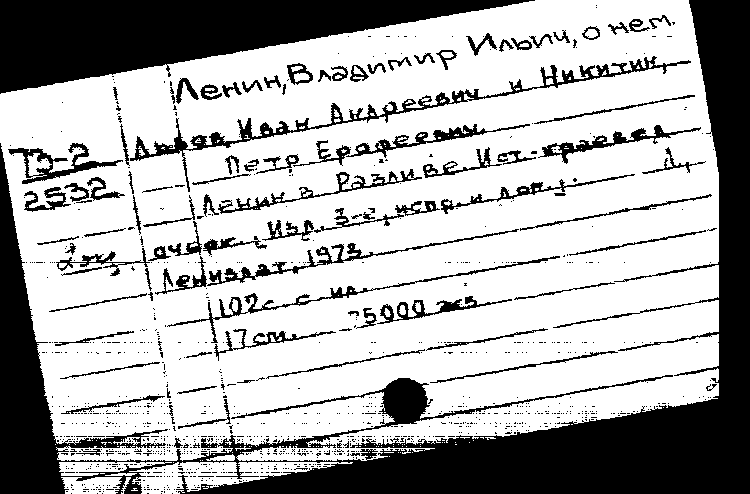 Ленин, Владимир Ильич, о нем.
ТЭ-2
2532
2 экз.
Львов, Иван Андреевич и Никитин,
Петр Ерофеевич.
Ленин в Разливе. Ист.-краевед
очерк. [Изд. 3-е, испр. и доп.]. Л.,
Лениздат, 1973.
102с. с ил.
17см. 75000 экз
16